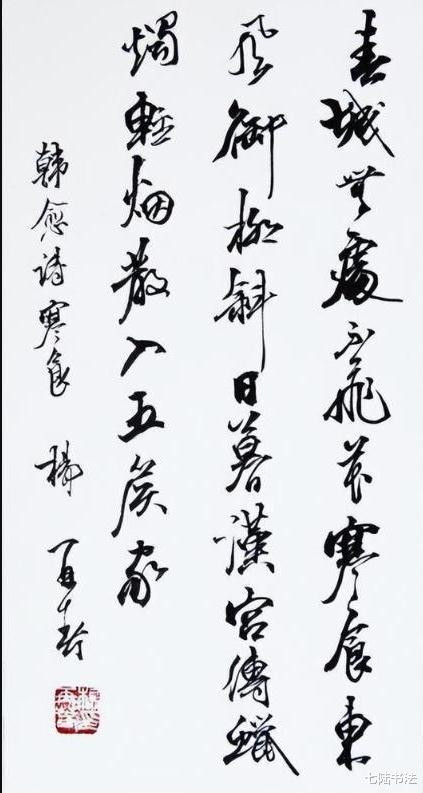 春城無處不飛花寒食東
風御柳斜日暮漢宮傳蠟
燭輕烟散入五侯家
韓愈詩寒食 楊再春
七陆书法